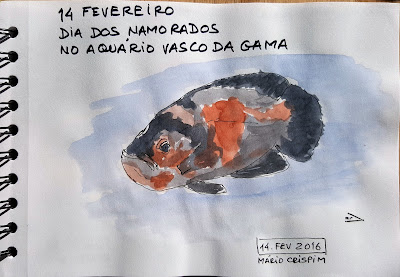 14 FEVEREIRO
DIA DOS NAMORADOS
NO AQUÁRIO VASCO DA GAMA
14. FEV 2016
MÁRIO CRISPIM